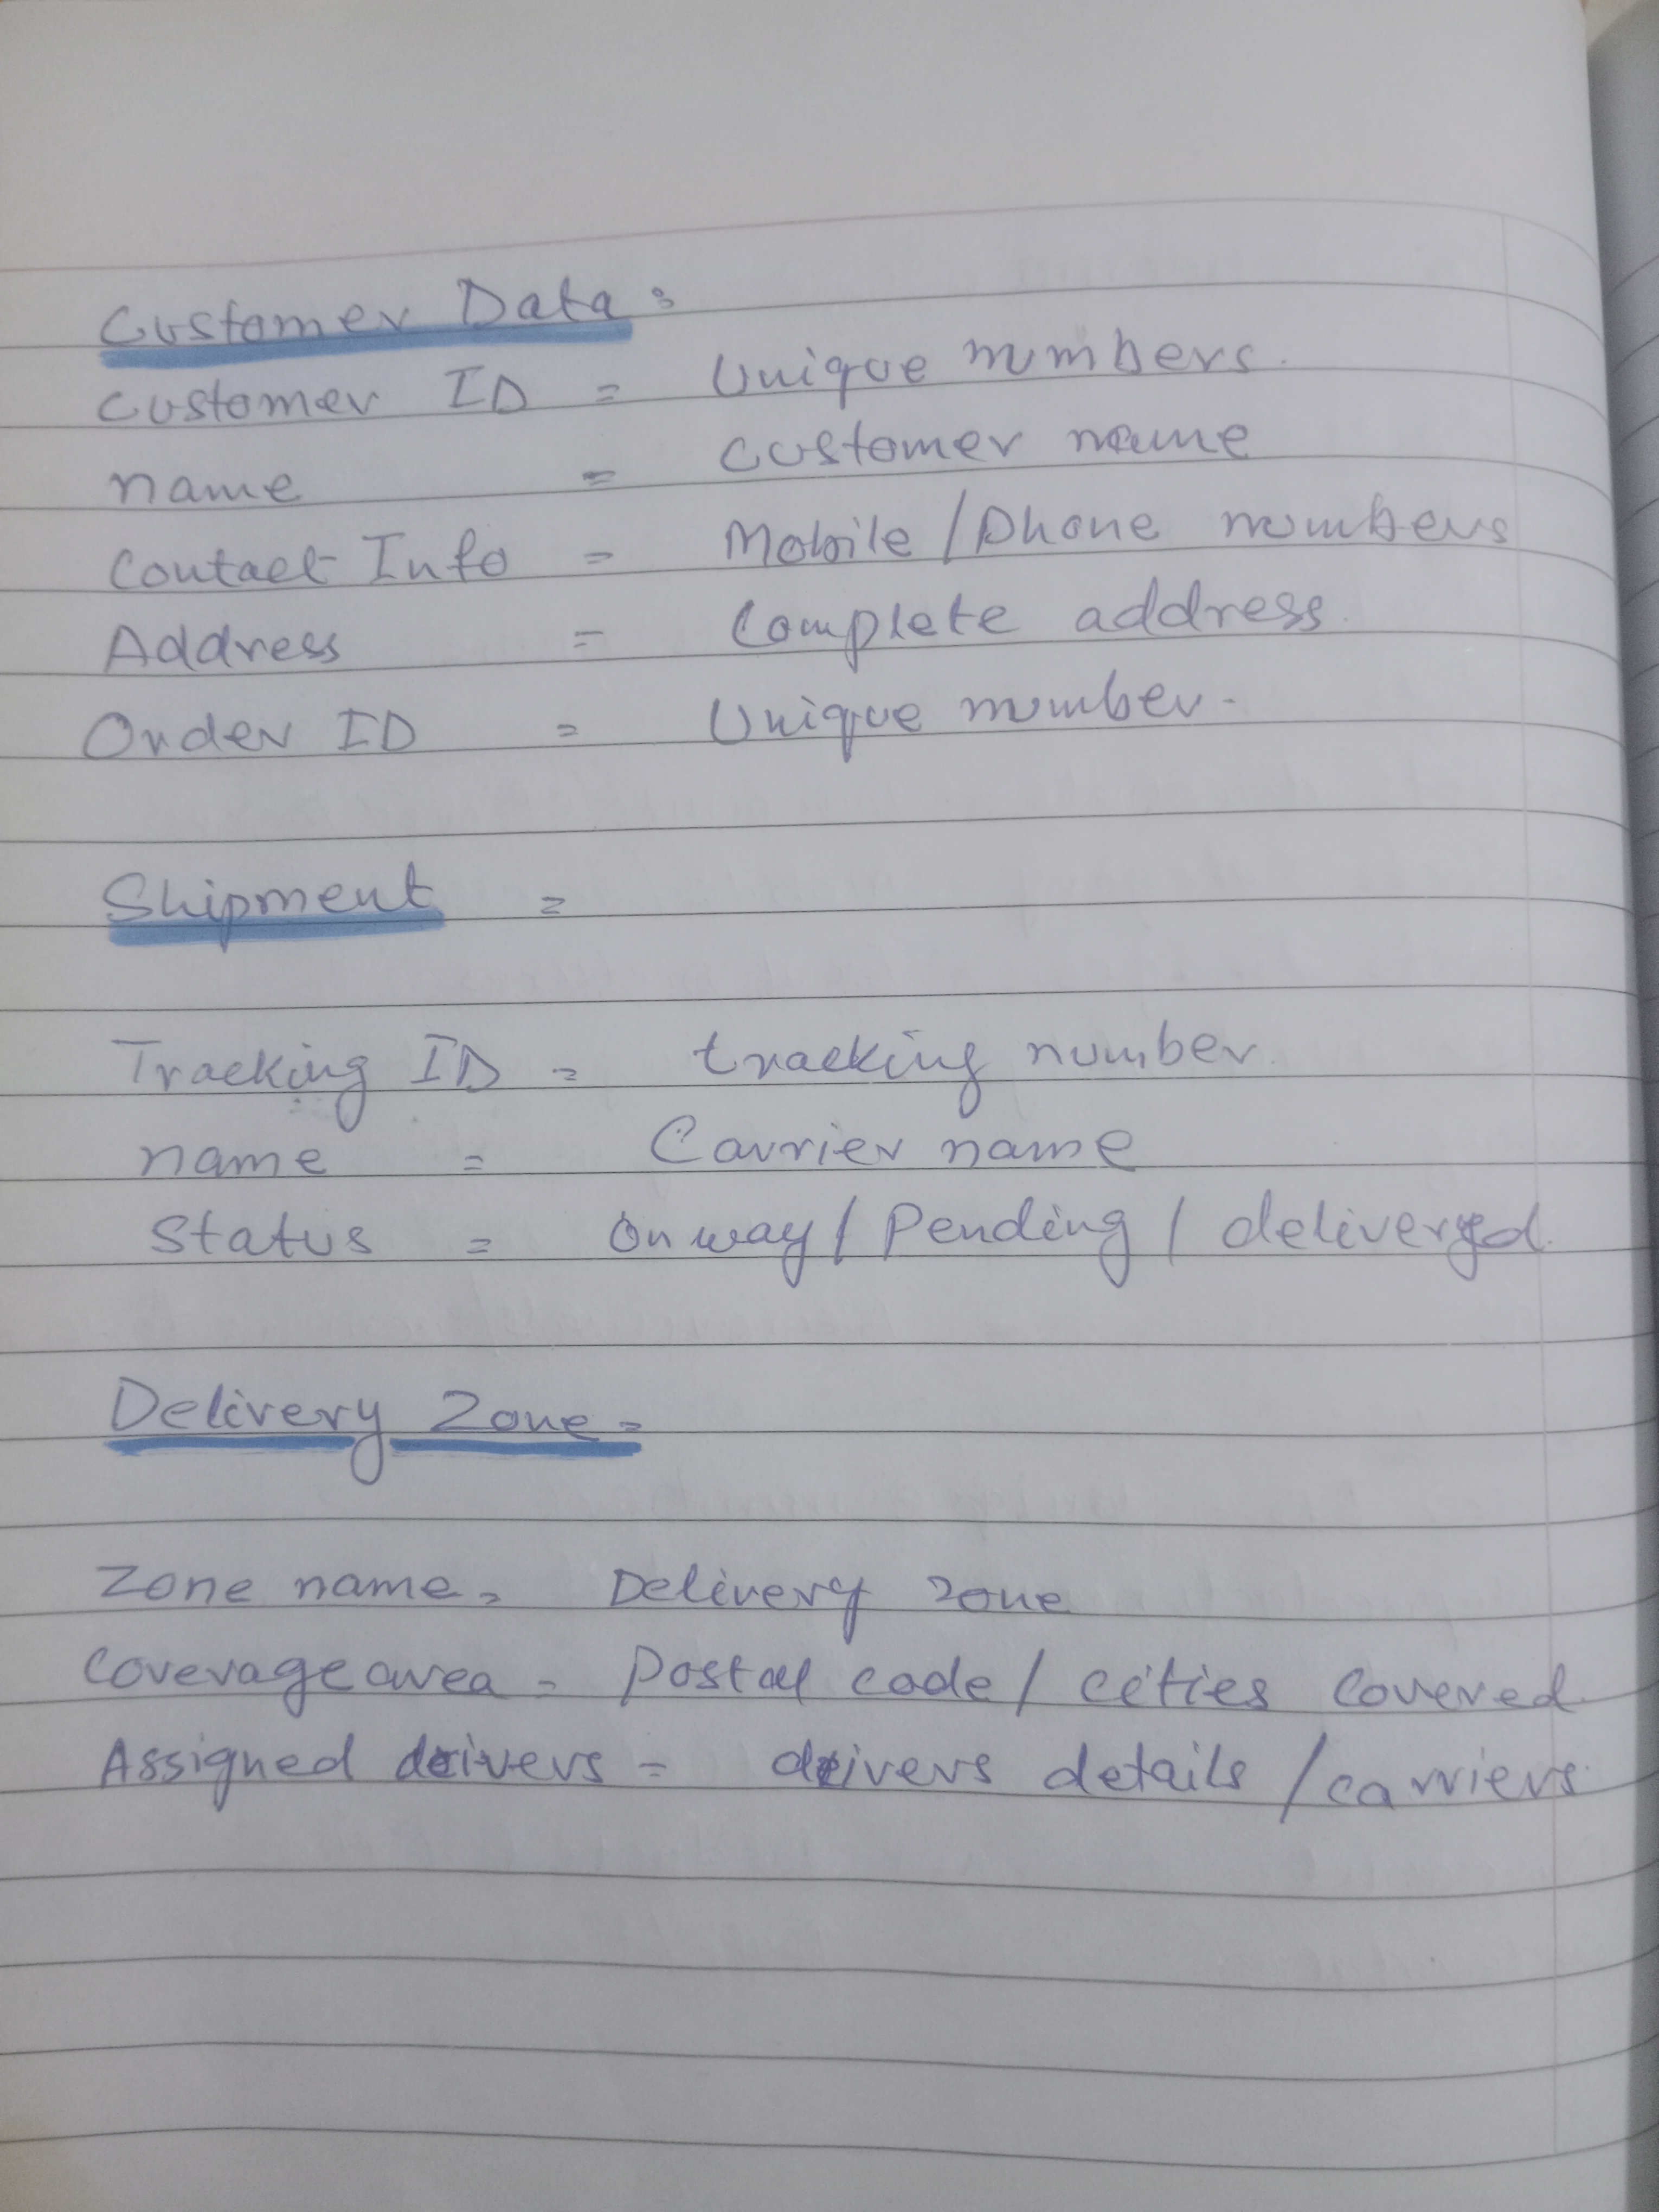 Customer Data :
Customer ID = Unique numbers.
name = customer name
Contact Info = Mobile / Phone numbers
Address = Complete address.
Order ID = Unique number.
Shipment =
Tracking ID = tracking number.
name = Carrier name
Status = On way / Pending / delivered.
Delivery Zone =
Zone name = Delivery zone
Coverage area = Postal code / cities covered.
Assigned drivers = drivers details / carriers.